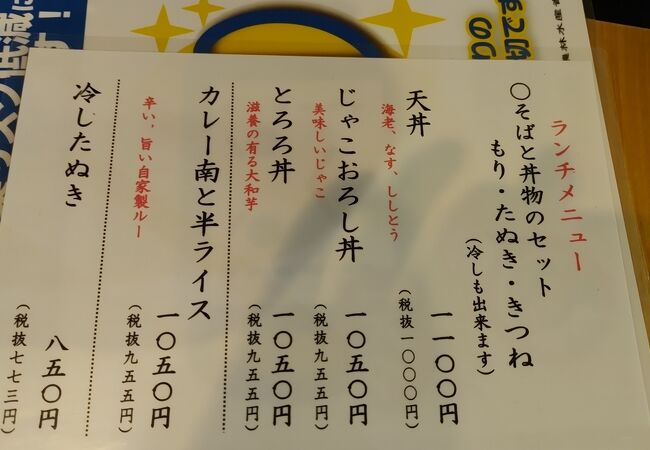 ランチメニュー
〇そばと丼物のセット
もり・たぬき・きつね
(冷しも出来ます)
天丼
海老、なす、ししとう
一一〇〇円
(税抜一〇〇〇円)
じゃこおろし丼
美味しいじゃこ
一〇五〇円
(税抜九五五円)
とろろ丼
滋養の有る大和芋
一〇五〇円
(税抜九五五円)
カレー南と半ライス
辛い,旨い自家製ルー
一〇五〇円
(税抜九五五円)
冷したぬき
八五〇円
(税抜七七三円)